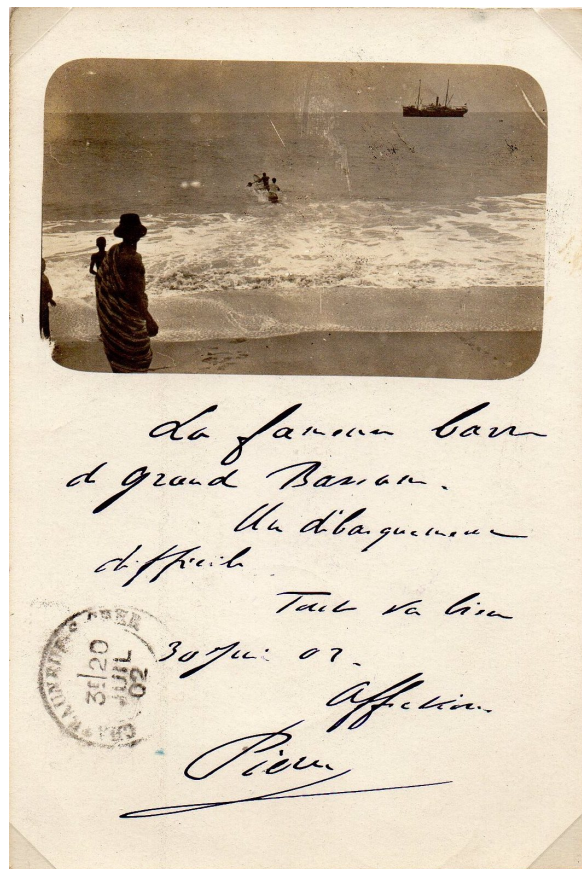 La fameuse barre
de grand Bassam.
Un débarquement
difficile
Tout va bien
30 Jui 02.
Affection
Pierre
3E/20
JUIL
02